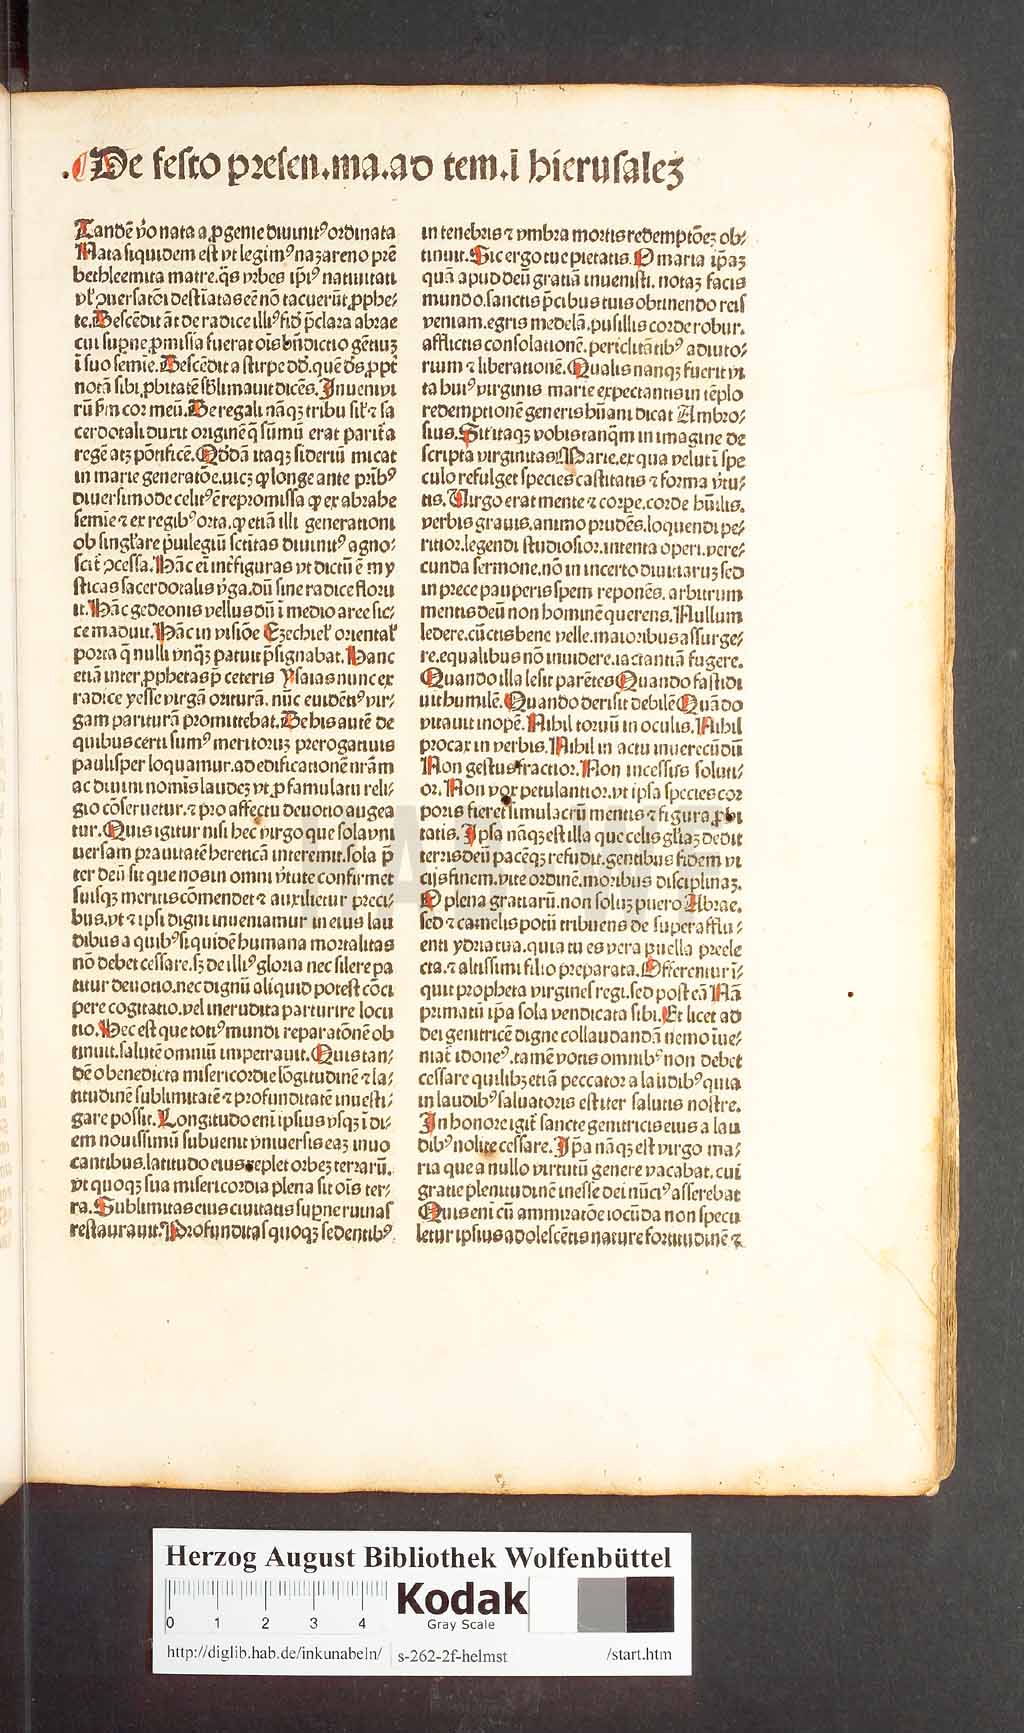 De festo presen.ma.ad tem.ī hierusalēꝫ
Tandē v̓o nata a ꝓgenie diuinitꝰ ordinata
Nata siquidem est vt legimꝰ nazareno prē
bethleemita matre.q̄s vrbes ip̄iꝰ natiuitati
vl̓ ꝯuersatōi destīatas eē nō tacuerūt ꝓphe⸗
te.Descēdit āt de radice illiꝰ fid̓ p̄clara abrae
cui sup̱ne ꝓmissa fuerat oīs bn̄dictio gētiuꝫ
ī suo semīe.Descēdit a stirpe dd̓.quē d̓s ꝓpt̓
notā sibi ꝓbitatē sb̓limauit dicēs.Inueni vi
rū ẜm cor meū.De regali nāqꝫ tribu sil̓ ⁊ sa
cerdotali duxit originē q̄ sūmū erat parit̓a
regē atqꝫ pōtificē.Qd̓dā itaqꝫ sideriū micat
in marie generatōe.vicꝫ ꝙ longe ante prībꝰ
diuersimode celitꝰ ē repromissa ꝙ ex abrahe
semīe ⁊ ex regibꝰ orta.ꝙ etiā illi generationi
ob singl̓are p̓uilegiū sctītas diuinitꝰ agno⸗
scit̓ ꝯcessa.Hāc eī int̓ figuras vt dictū ē my
sticas sacerdotalis v̓ga.dū sine radice floru
it.Hāc gedeonis vellus dū ī medio aree sic⸗
ce maduit.Hāc in visiōe Ezechiel̓ oriental̓
porta q̄ nulli vnqꝫ patuit p̄signabat.Hanc
etiā inter ꝓphetas p̄ ceteris ysaias nunc ex
radice yesse virgā oriturā.nūc euidētiꝰ vir⸗
gam parituraꝫ promittebat.De his autē de
quibus certi sumꝰ meritoruꝫ prerogatiuis
paulisper loquamur.ad edificationē nr̄am
ac diuini nomīs laudeꝫ vt ꝓ famulatu reli⸗
gio cōseruetur.⁊ pro affectu deuotio augea
tur.Quis igitur nisi hec virgo que sola vni
uersam prauitatē hereticā interemit.sola p̄
ter deū sit que nos in omni v̓tute confirmet
suisqꝫ meritis cōmendet ⁊ auxilietur preci⸗
bus.vt ⁊ ipsi digni inueniamur in eius lau
dibus a quibꝰ siquidē humana mortalitas
nō debet cessare.sꝫ de illiꝰ gloria nec silere pa
titur deuotio.nec dignū aliquid potest cōci
pere cogitatio.vel inerudita parturire locu
tio.Hec est que totiꝰ mundi reparatōnē ob
tinuit.salutē omniū impetrauit.Quis tan⸗
dē o benedicta misericordie lōgitudinē ⁊ la⸗
titudinē sublimitatē ⁊ profunditatē inuesti⸗
gare possit.Longitudo enī ipsius vsqꝫ ī di⸗
em nouissimū subuenit vniuersis eaꝫ inuo
cantibus.latitudo eius replet orbeꝫ terrarū.
vt quoqꝫ sua misericordia plena sit oīs ter⸗
ra.Sublimitas eius ciuitatis sup̱ne ruinas
restaurauit.Profunditas quoqꝫ sedentibꝰ
in tenebris ⁊ vmbra mortis redemptōeꝫ ob⸗
tinuit.Sic ergo tue pietatis.O maria ip̄aꝫ
quā apud deū gratiā inuenisti.notaꝫ facis
mundo.sanctis p̄cibus tuis obtinendo reis
veniam.egris medelā.pusillis corde robur.
afflictis consolationē.periclitātibꝰ adiuto⸗
rium ⁊ liberationē.Qualis nanqꝫ fuerit vi
ta huiꝰ virginis marie expectantis in tēplo
redemptionē generis hūani dicat Ambro⸗
sius.Sit itaqꝫ vobis tanq̄m in imagine de
scripta virginitas Marie.ex qua velut ī spe
culo refulget species castitatis ⁊ forma v̓tu⸗
tis.Uirgo erat mente ⁊ corpe.corde hūilis.
verbis grauis.animo prudēs.loquendi pe⸗
ritior.legendi studiosior.intenta operi.vere⸗
cunda sermone.nō in incerto diuitiaruꝫ sed
in prece pauperis spem reponēs.arbitrum
mentis deū non hominē querens.Nullum
ledere.cūctis bene velle.maioribus assurge⸗
re.equalibus nō inuidere.iactantiā fugere.
Quando illa lesit parētes Quando fastidi
uit humilē.Quando derisit debilē Quādo
vitauit inopē.Nihil toruū in oculis.Nihil
procax in verbis.Nihil in actu inuerecūdū
Non gestus fractior.Non incessus soluti⸗
or.Non vox petulantior.vt ipsa species cor
poris fieret simulacrū mentis ⁊ figura ꝓbi
tatis.Ipsa nāqꝫ est illa que celis gl̓iaꝫ dedit
terris deū pacēqꝫ refudit.gentibus fidem vi
cijs finem.vite ordinē.moribus disciplinaꝫ.
O plena gratiarū.non soluꝫ puero Abrae.
sed ⁊ camelis potū tribuens de superafflu⸗
enti ydria tua.quia tu es vera puella preele
cta.⁊ altissimi filio preparata.Offerentur ī⸗
quit propheta virgines regi.sed post eā Nā
primatū ip̄a sola vendicata sibi.Et licet ad
dei genitricē digne collaudandā nemo īue⸗
niat̓ idoneꝰ.tamē votis omnibꝰ non debet
cessare quilibꝫ etiā peccator a laudibꝰ quia
in laudibꝰ saluatoris est iter salutis nostre.
In honore igit̓ sancte genitricis eius a lau
dibꝰ nolite cessare.Ip̄a nāqꝫ est virgo ma⸗
ria que a nullo virtutū genere vacabat.cui
gratie plenitudinē inesse dei nūciꝰ asserebat
Quis enī cū ammiratōe iocūda non specu
letur ipsius adolescētis nature fortitudinē ⁊
HAB WF
Herzog August Bibliothek Wolfenbüttel
0 1 2 3 4
Kodak
Gray Scale
http://diglib.hab.de/inkunabeln/ s-262-2f-helmst /start.htm